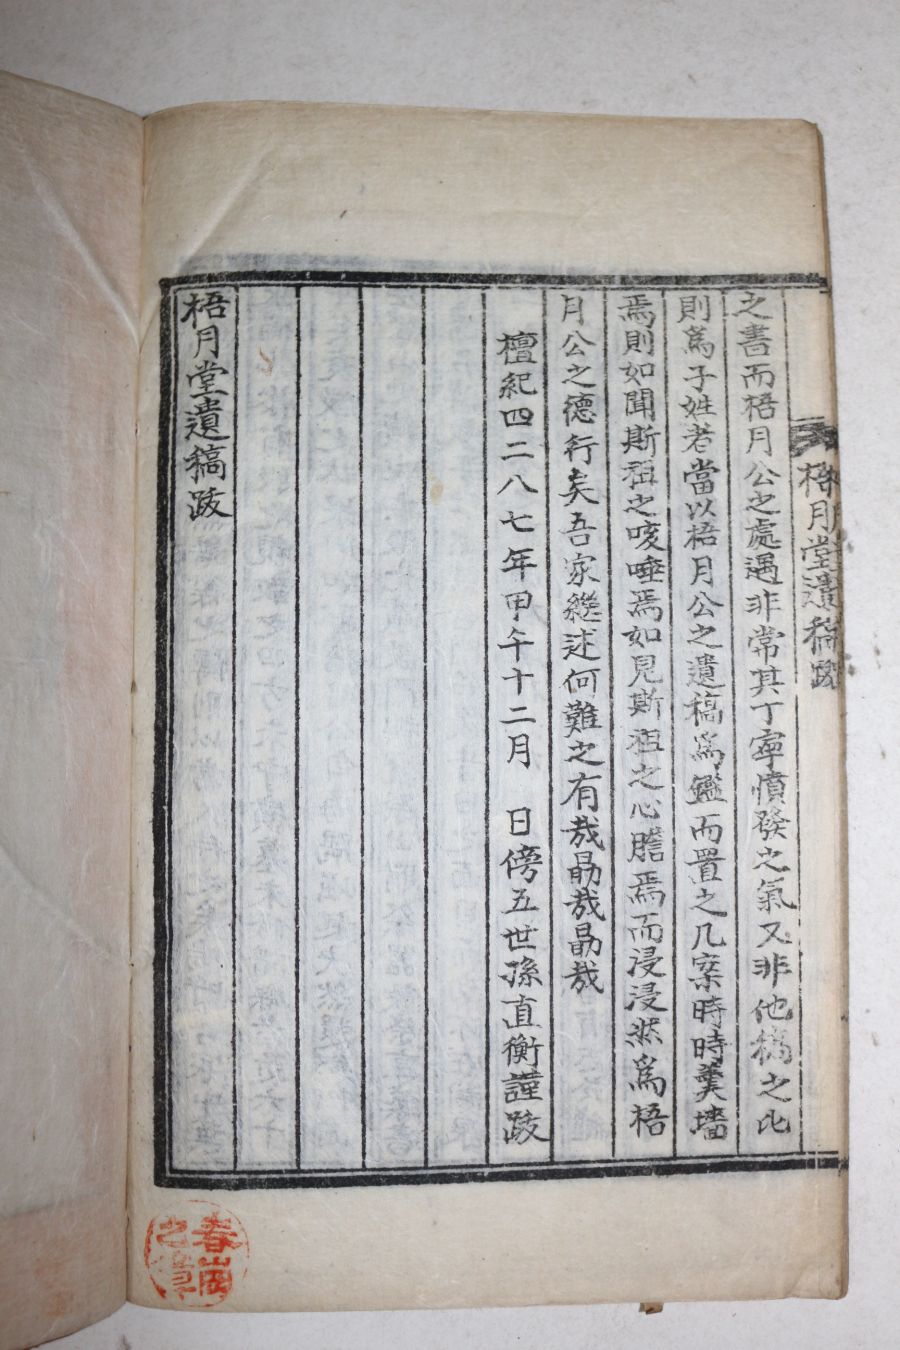 梧月堂遺稿跋
之書而梧月公之處遇非常其丁寧憤發之氣又非他稿之比
則爲子姓者當以梧月公之遺稿爲鑑而置之几案時時羹墻
焉則如聞斯祖之咳唾焉如見斯祖之心膽焉而浸浸然爲梧
月公之德行矣吾家繼述何難之有哉勗哉勗哉
檀紀四二八七年甲午十二月 日傍五世孫直衡謹跋
梧月堂遺稿跋
春崗
之章